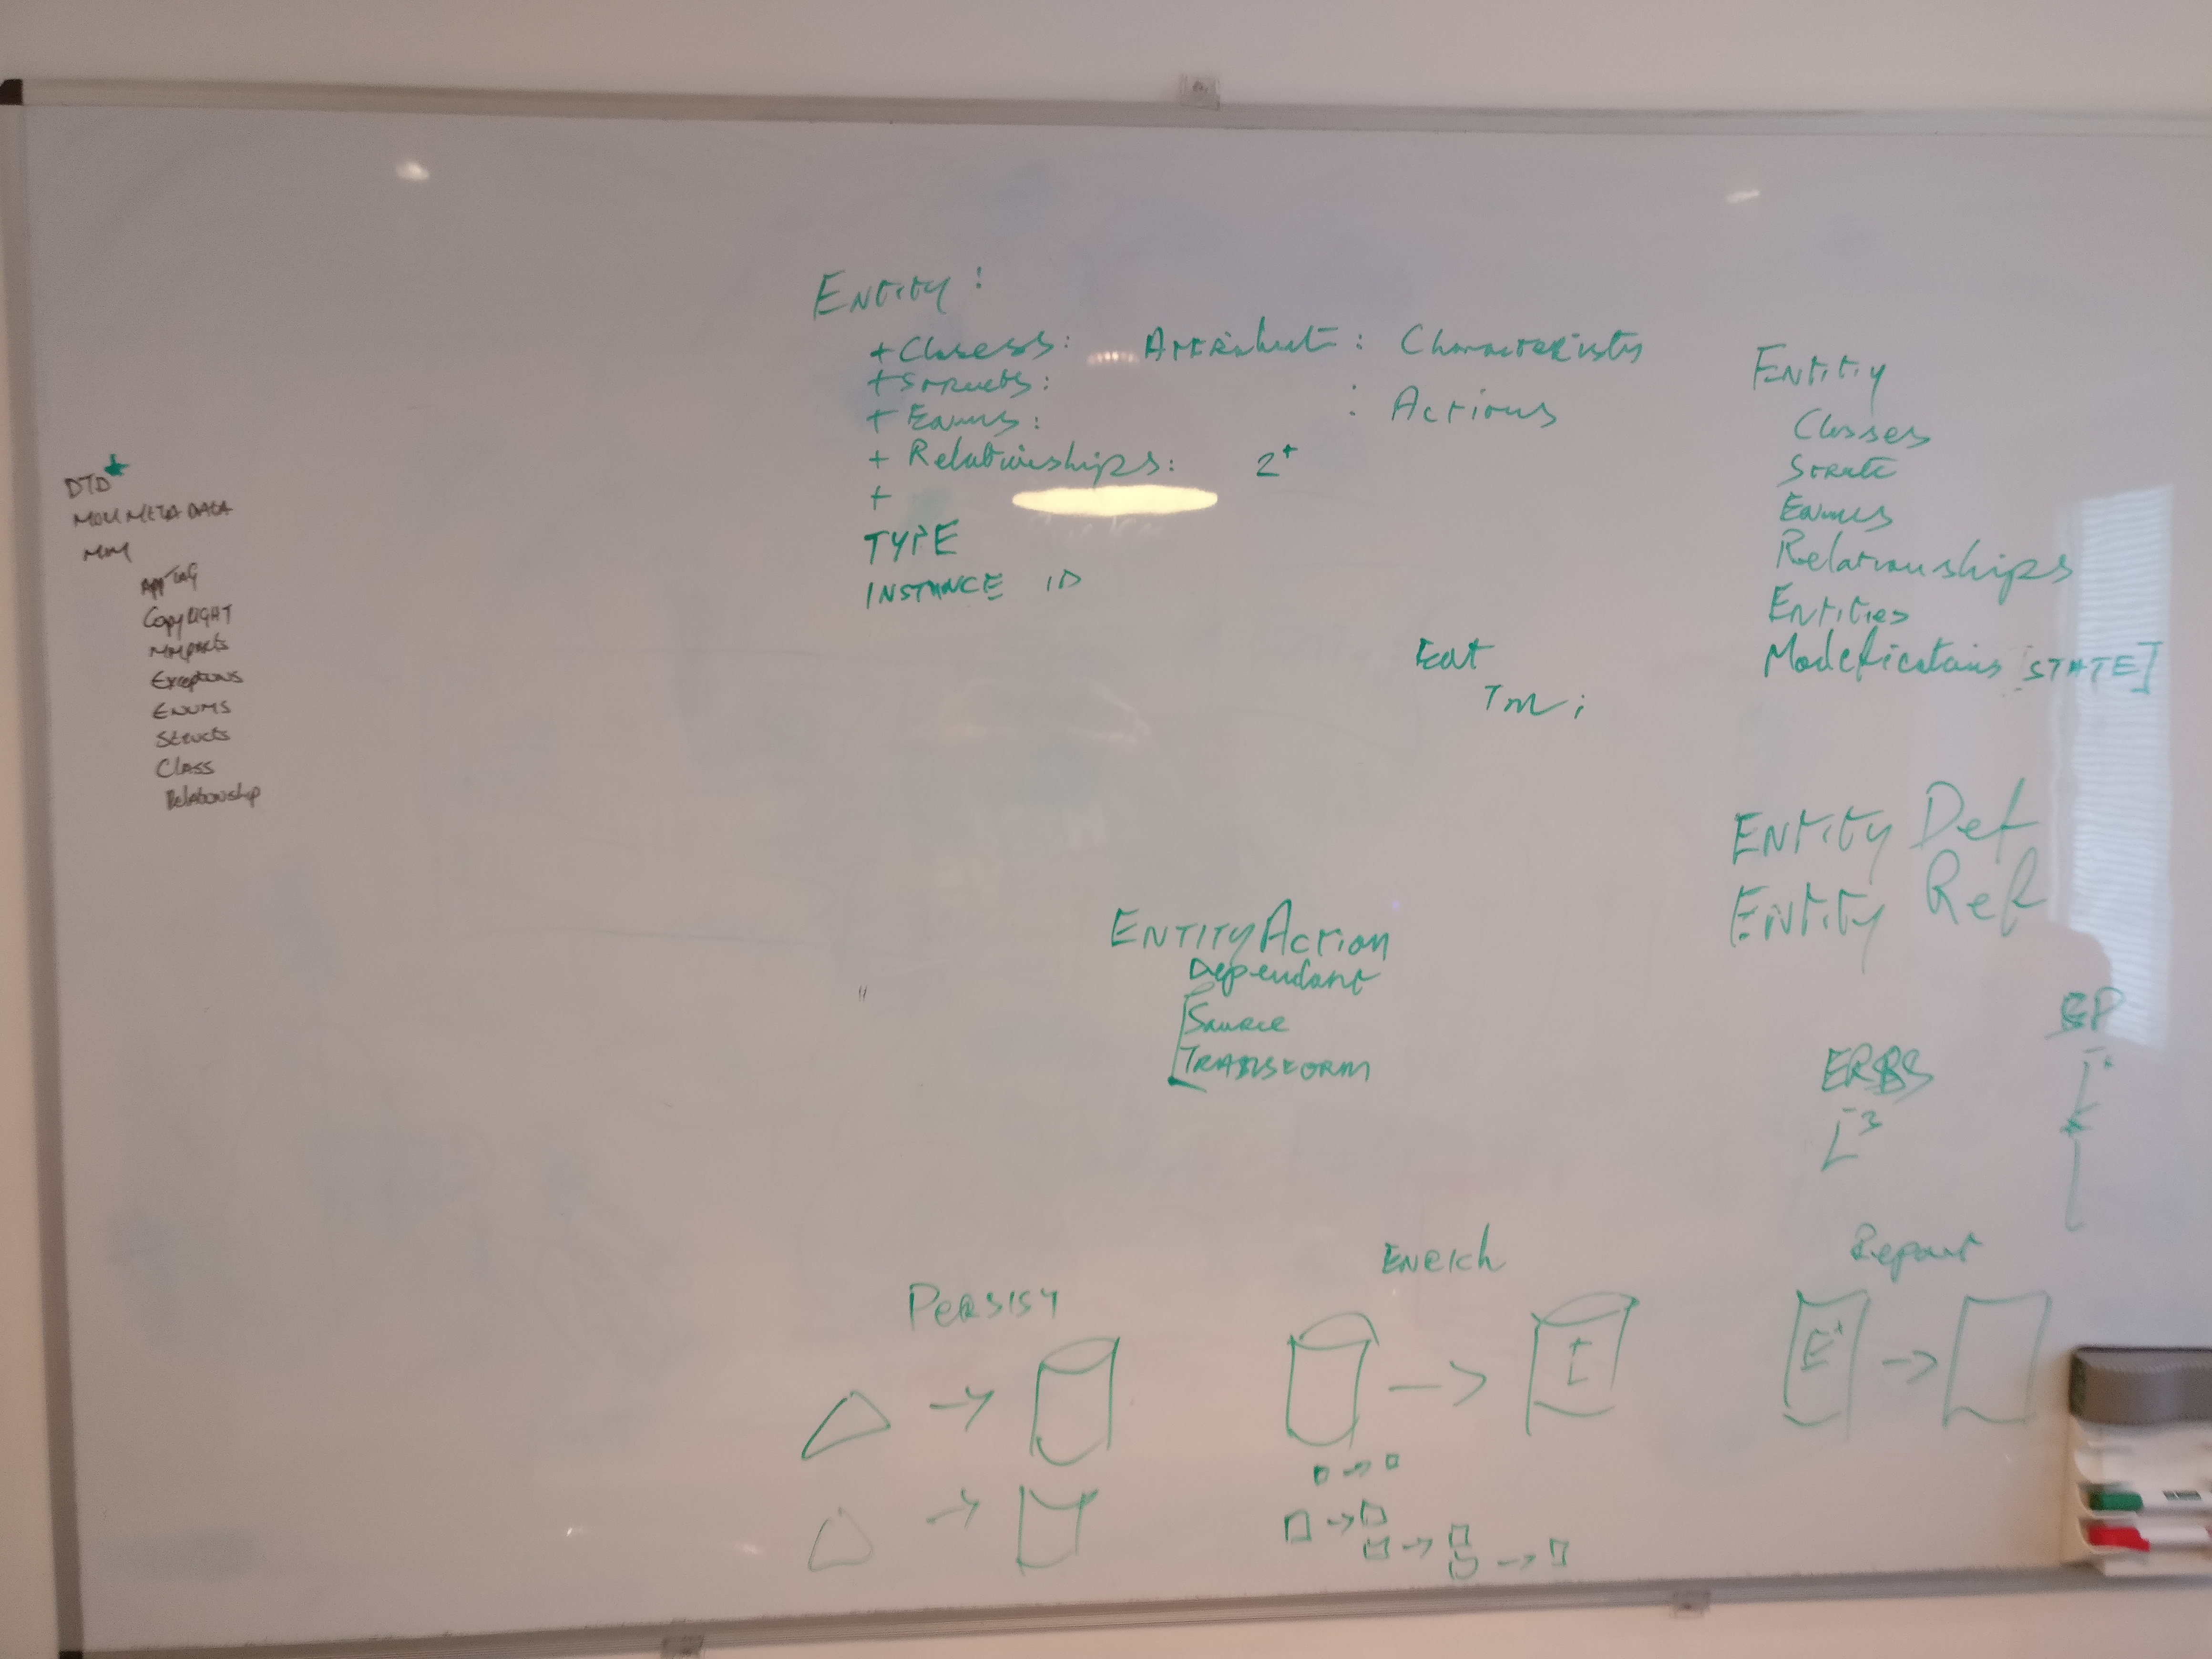 DTD
MOM META DATA
MIM
App TAG
CopyRIGHT
MIMparts
Exceptions
ENUMS
Structs
Class
Relationship
Entity:
+ Classess: Attribut: Characterists
+ Structs:
+ Enums: : Actions
+ Relationships: 2+
+
TYPE
INSTANCE ID
Entity
Classes
Struct
Enums
Relationships
Entities
Modifications [STATE]
Entity Def
Entity Ref
ENTITY Action
Dependant
Source
TRANSFORM
ERBS
PERSIST
ENRICH
Report
E
E+